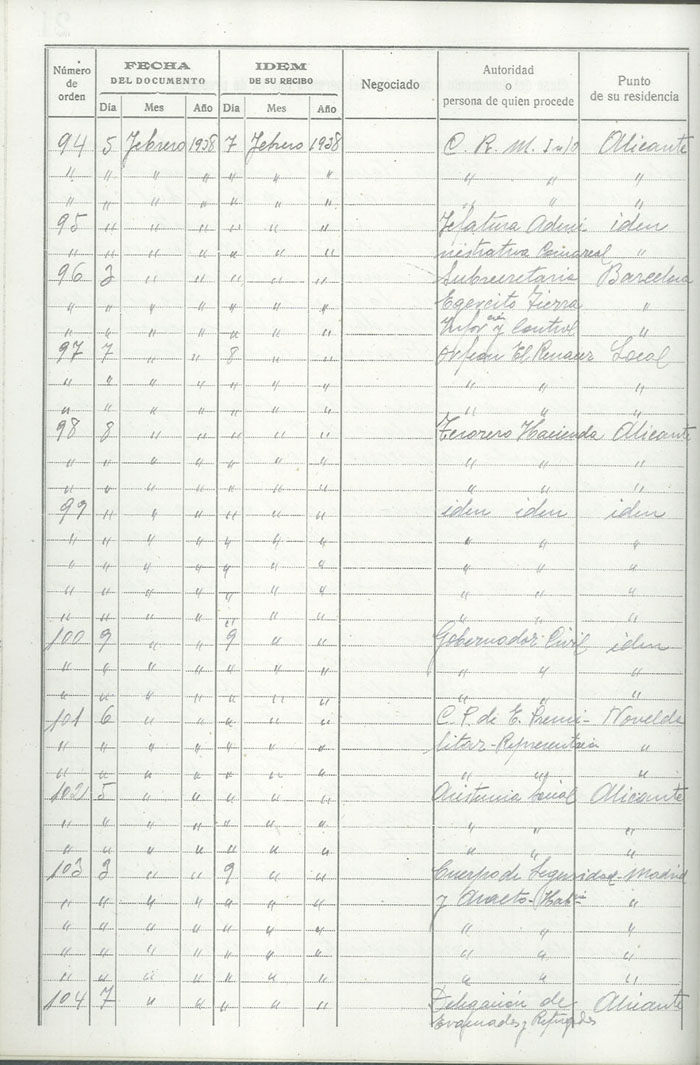 Número de orden FECHA DEL DOCUMENTO IDEM DE SU RECIBO Negociado Autoridad o persona de quien procede Punto de su residencia
Día Mes Año Día Mes Año
94 5 Febrero 1938 7 Febrero 1938 C. R. M. Alicante
" " " " " " " " " "
" " " " " " " " " "
95 " " " " " " Jefatura Admi iden
" " " " " " " nistrativa Comarcal "
96 3 " " " " " Subsecretaria Barcelona
" " " " " " " Egercito Tierra "
" " " " " " " Inforón y Control "
97 7 " " 8 " " Orfeon El Renacer Local
" " " " " " " " " "
" " " " " " " " " "
98 8 " " " " " Tesorero Hacienda Alicante
" " " " " " " " " "
" " " " " " " " " "
99 " " " " " " iden iden iden
" " " " " " " " "
" " " " " " " " " "
" " " " " " " " " "
" " " " " " " " " "
100 9 " " 9 " " Gobernador Civil iden
" " " " " " " " " "
" " " " " " " " " "
101 6 " " " " " C. P. de E. Premi- Novelda
" " " " " " " litar-Representacia "
" " " " " " " " " "
102 5 " " " " " Asistencia Social Alicante
" " " " " " " " " "
" " " " " " " " " "
103 3 " " 9 " " Cuerpo de Seguridad Madrid
" " " " " " " y "
" " " " " " " " " "
" " " " " " " " " "
" " " " " " " " " "
104 7 " " " " " Delegación de Alicante
Evacuados y Refugiados